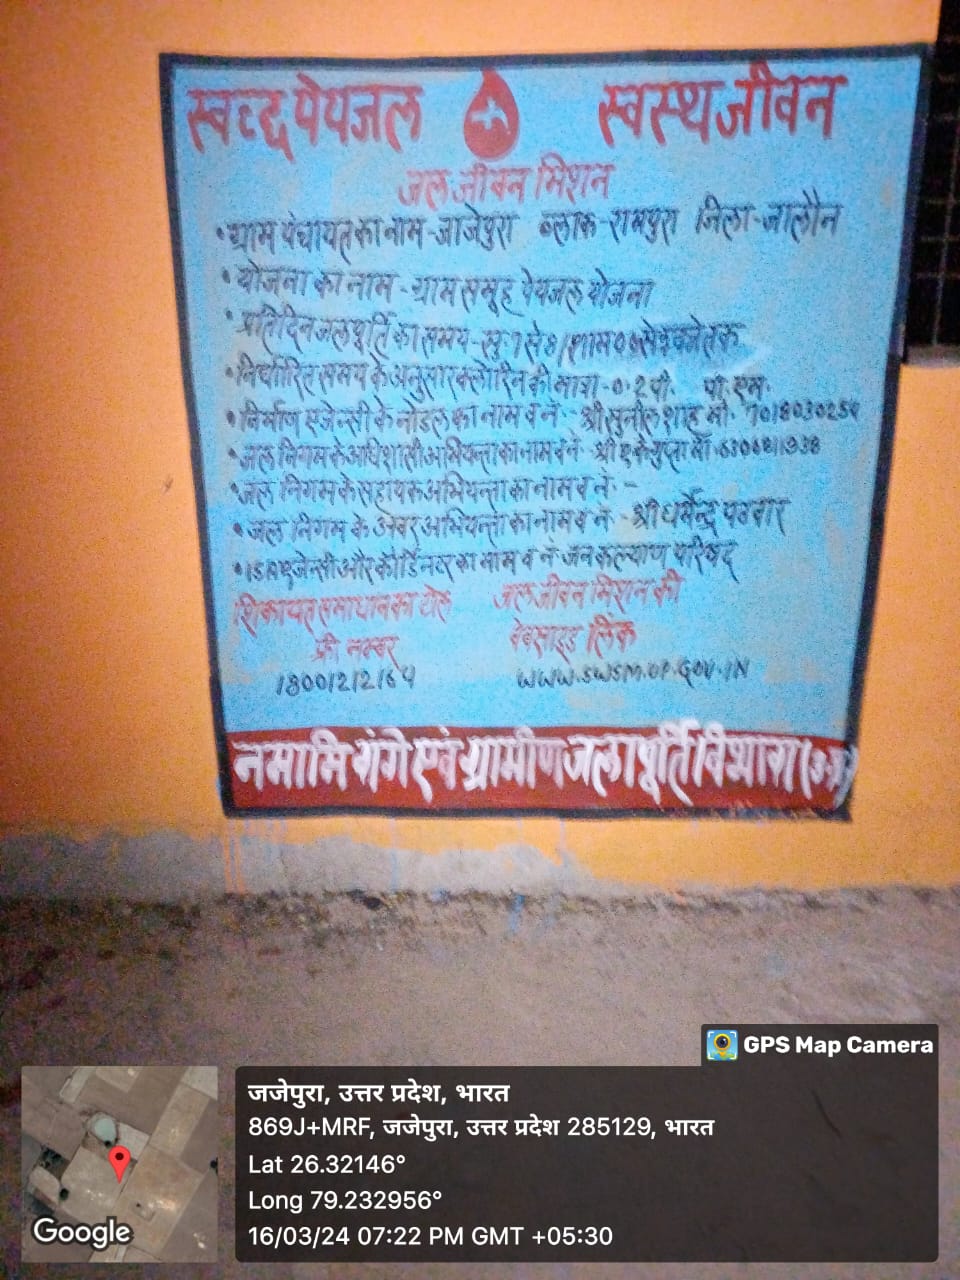 स्वच्छ पेयजल स्वस्थ जीवन
जल जीवन मिशन
• ग्राम पंचायत का नाम - जाजेपुरा ब्लाक - रामपुरा जिला - जालौन
• योजना का नाम - ग्राम समुह पेयजल योजना
• प्रतिदिन जलपूर्ति का समय - सु. 7 से 8 / शाम
• निर्धारित समय के अनुसार क्लोरिन की मात्रा - 0.2 पी. पी. एम.
• निर्माण एजेन्सी के नोडल का नाम व नं - श्री सुनील शाह मो. 7018030254
• जल निगम के अधिशासी अभियन्ता का नाम व नं - श्री ए के गुप्ता मो.
• जल निगम के सहायक अभियन्ता का नाम व नं : -
• जल निगम के अवर अभियन्ता का नाम व नं - श्री धर्मेन्द्र
• ISA एजेन्सी और कोर्डिनेटर का नाम व नं - जन कल्याण परिषद
शिकायत समाधान का टोल जल जीवन मिशन की
फ्री नम्बर वेबसाइड लिंक
18001212164 WWW.SWSM.UP.GOV.IN
नमामि गंगे एवं ग्रामीण जलापूर्ति विभाग (उ.प्र.)
GPS Map Camera
जजेपुरा, उत्तर प्रदेश, भारत
869J+MRF, जजेपुरा, उत्तर प्रदेश 285129, भारत
Lat 26.32146°
Long 79.232956°
16/03/24 07:22 PM GMT +05:30
Google